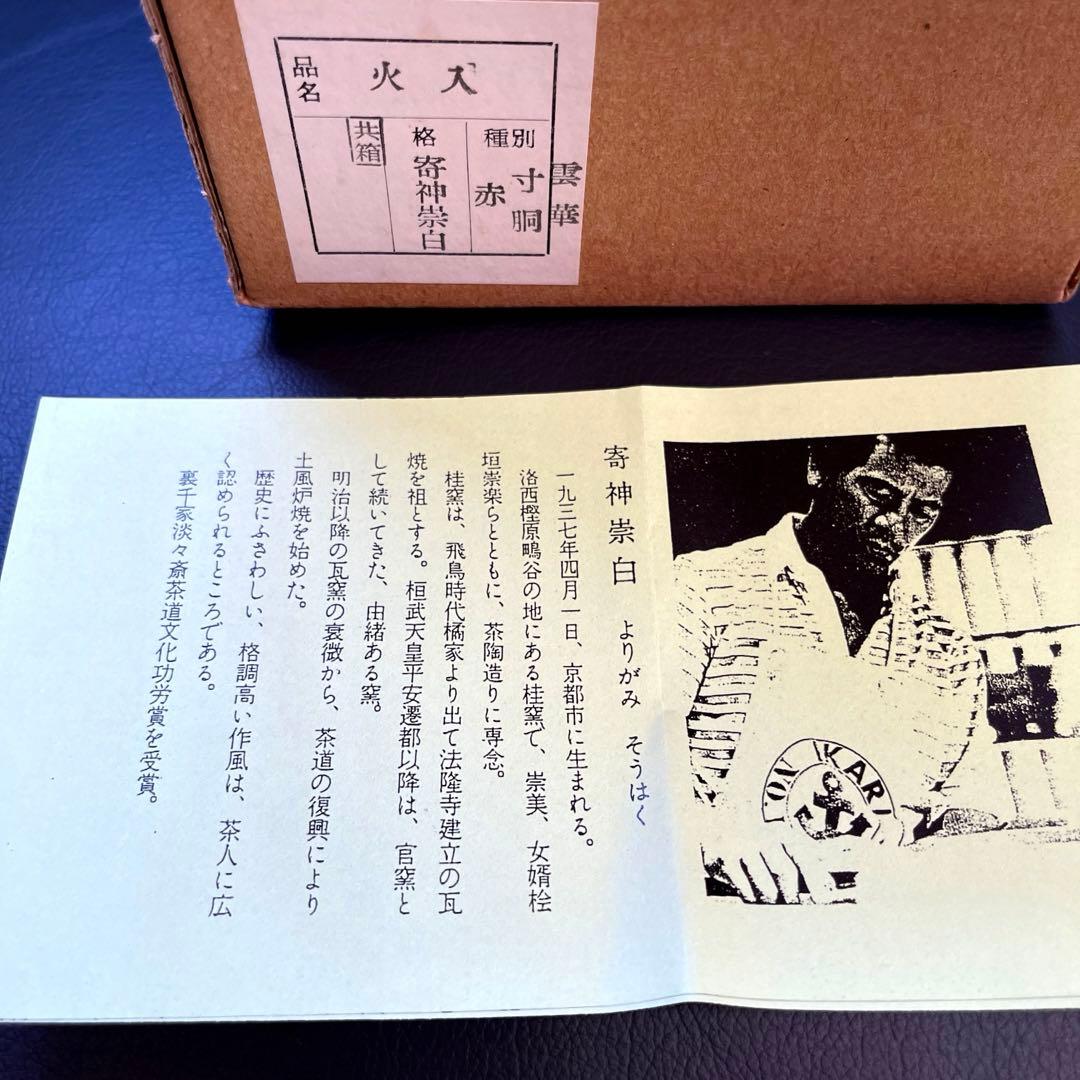 品名
火入
種別
雲華
寸胴
赤
格
寄神崇白
共箱
寄神崇白 よりがみ そうはく
一九三七年四月一日、京都市に生まれる。
洛西樫原鴫谷の地にある桂窯で、崇美、女婿桧
垣崇楽らとともに、茶陶造りに専念。
桂窯は、飛鳥時代橘家より出て法隆寺建立の瓦
焼を祖とする。桓武天皇平安遷都以降は、官窯と
して続いてきた、由緒ある窯。
明治以降の瓦窯の衰微から、茶道の復興により
土風炉焼を始めた。
歴史にふさわしい、格調高い作風は、茶人に広
く認められるところである。
裏千家淡々斎茶道文化功労賞を受賞。
IKARI